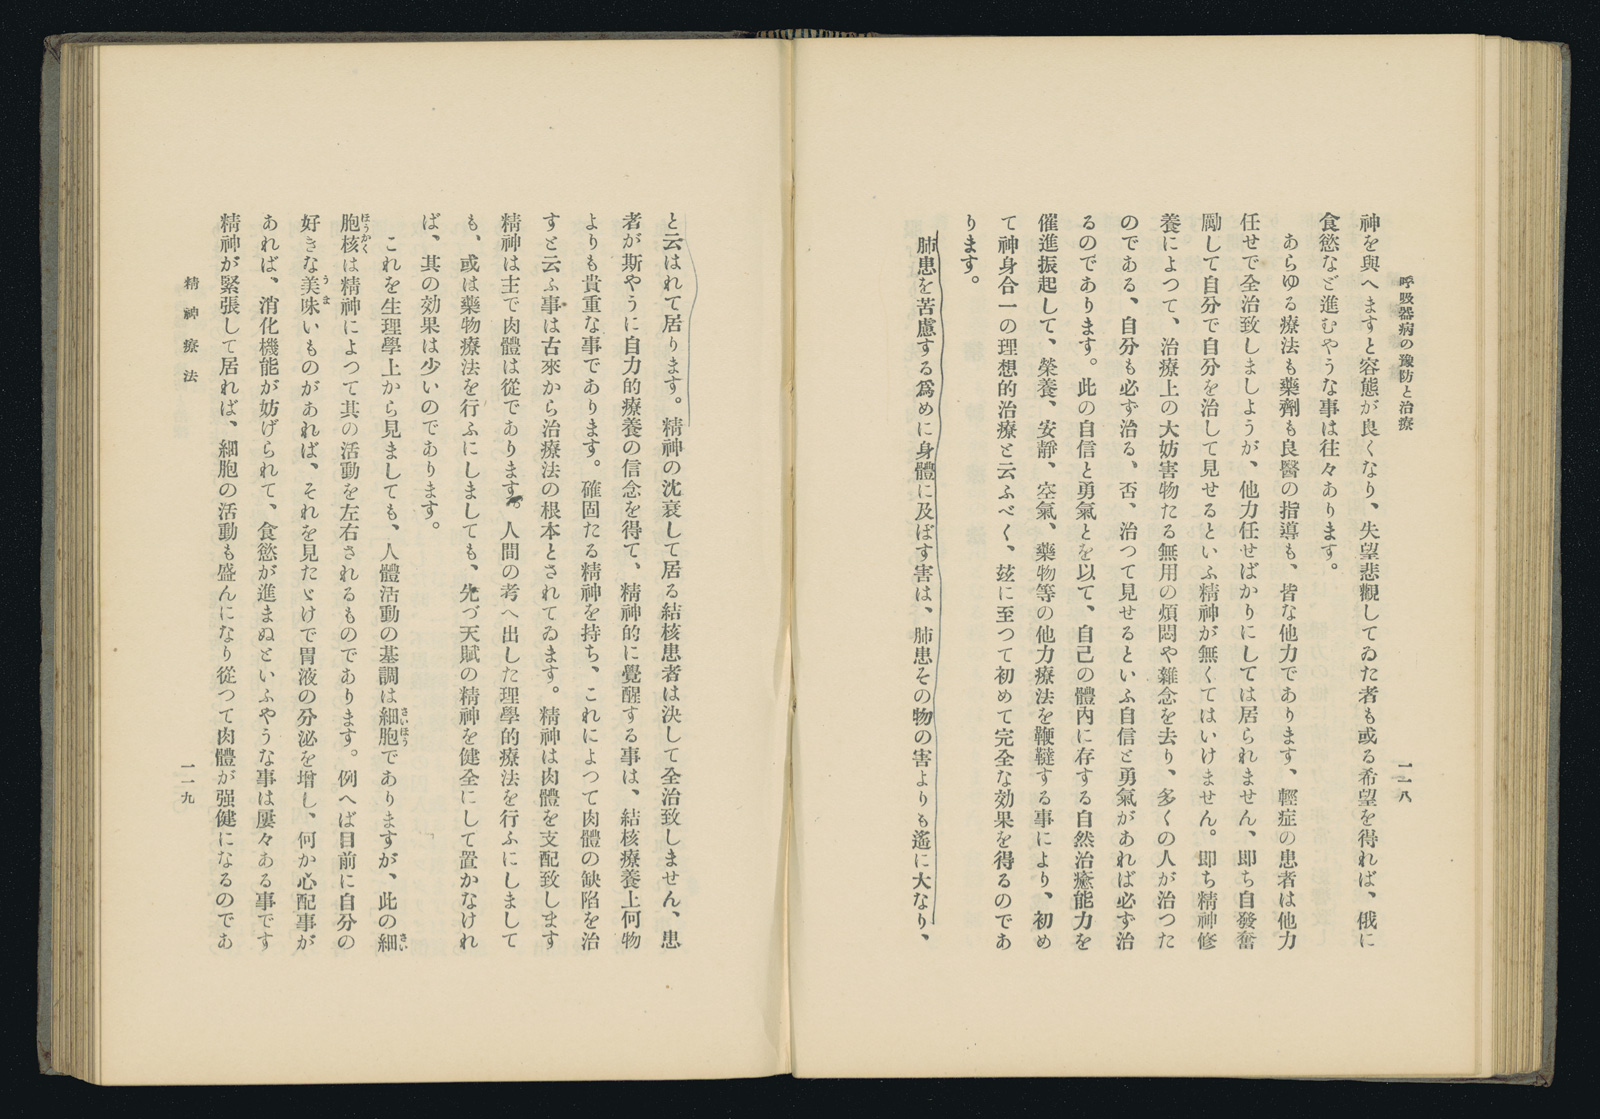 呼吸器病の豫防と治療
一一八
神を與へますと容態が良くなり、失望悲觀してゐた者も或る希望を得れば、俄に
食慾など進むやうな事は往々あります。
あらゆる療法も藥劑も良醫の指導も、皆な他力であります、輕症の患者は他力
任せで全治致しましようが、他力任せばかりにしては居られません、即ち自發奮
勵して自分で自分を治して見せるといふ精神が無くてはいけません。即ち精神修
養によつて、治療上の大妨害物たる無用の煩悶や雜念を去り、多くの人が治つた
のである、自分も必ず治る、否、治つて見せるといふ自信と勇氣があれば必ず治
るのであります。此の自信と勇氣とを以て、自己の體內に存する自然治癒能力を
催進振起して、榮養、安靜、空氣、藥物等の他力療法を鞭韃する事により、初め
て神身合一の理想的治療と云ふべく、玆に至つて初めて完全な効果を得るのであ
ります。
肺患を苦慮する爲めに身體に及ばす害は、肺患その物の害よりも遙に大なり、
と云はれて居ります。精神の沈衰して居る結核患者は決して全治致しません、患
者が斯やうに自力的療養の信念を得て、精神的に覺醒する事は、結核療養上何物
よりも貴重な事であります。確固たる精神を持ち、これによつて肉體の缺陷を治
すと云ふ事は古來から治療法の根本とされてゐます。精神は肉體を支配致します
精神は主で肉體は從であります。人間の考へ出した理學的療法を行ふにしまして
も、或は藥物療法を行ふにしましても、先づ天賦の精神を健全にして置かなけれ
ば、其の効果は少いのであります。
これを生理學上から見ましても、人體活動の基調は細胞さいほうでありますが、此の細さい
胞核ほうかくは精神によつて其の活動を左右されるものであります。例へば目前に自分の
好きな美味うまいものがあれば、それを見たゞけで胃液の分泌を增し、何か心配事が
あれば、消化機能が妨げられて、食慾が進まぬといふやうな事は屢々ある事です
精神が緊張して居れば、細胞の活動も盛んになり從つて肉體が强健になるのであ
精神療法
一一九